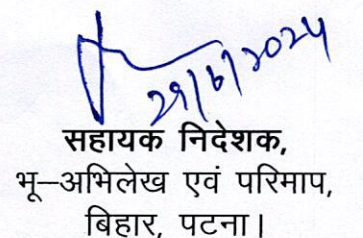 29/6/2024
सहायक निदेशक,
भू–अभिलेख एवं परिमाप,
बिहार, पटना।